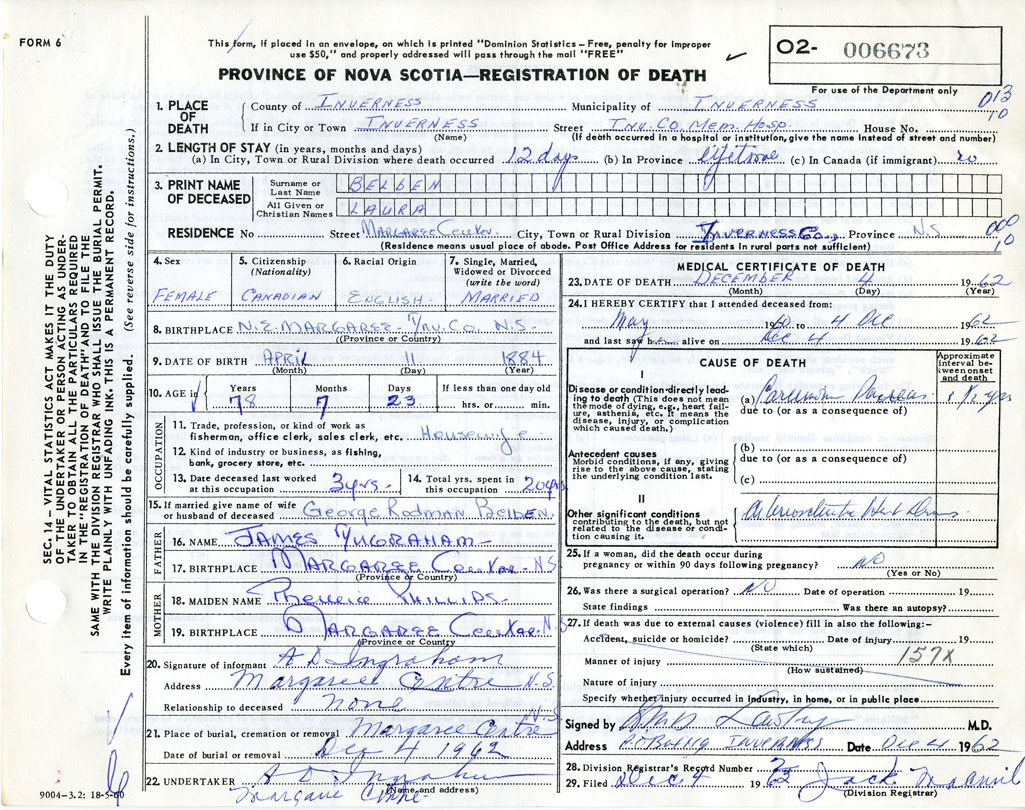 FORM 6
This form, if placed in an envelope, on which is printed "Dominion Statistics – Free, penalty for improper
use $50," and properly addressed will pass through the mail "FREE"
PROVINCE OF NOVA SCOTIA—REGISTRATION OF DEATH
O2- 006673
For use of the Department only
013
10
1. PLACE OF DEATH
County of INVERNESS Municipality of INVERNESS
If in City or Town INVERNESS Street INV. CO. MEM. HOSP House No.
(Name) (If death occurred in hospital or institution, give the name instead of street and number)
2. LENGTH OF STAY (in years, months and days)
(a) In City, Town or Rural Division where death occurred 12 days (b) In Province lifetime (c) In Canada (if immigrant)
3. PRINT NAME OF DECEASED
Surname or Last Name BELDEN
All Given or Christian Names LAURA
RESIDENCE No Street MARGAREE City, Town or Rural Division INVERNESS CO. Province N.S
000
10
(Residence means usual place of abode. Post Office Address for residents in rural parts not sufficient)
4. Sex
FEMALE
5. Citizenship (Nationality)
CANADIAN
6. Racial Origin
ENGLISH
7. Single, Married, Widowed or Divorced (write the word)
MARRIED
8. BIRTHPLACE N.E. MARGAREE INV. CO. N.S.
(Province or Country)
9. DATE OF BIRTH APRIL 11 1884
(Month) (Day) (Year)
10. AGE in
Years Months Days If less than one day old
78 7 23 hrs. or min.
OCCUPATION
11. Trade, profession, or kind of work as fisherman, office clerk, sales clerk, etc. Housewife
12. Kind of industry or business, as fishing, bank, grocery store, etc.
13. Date deceased last worked at this occupation 3 yrs.
14. Total yrs. spent in this occupation 20 yrs
15. If married give name of wife or husband of deceased GEORGE RODMAN BELDEN
FATHER
16. NAME JAMES INGRAHAM
17. BIRTHPLACE MARGAREE N.S
(Province or Country)
MOTHER
18. MAIDEN NAME PHILLIPS
19. BIRTHPLACE MARGAREE N.S
(Province or Country
20. Signature of informant A D Ingraham
Address Margaree Centre N.S
Relationship to deceased None
21. Place of burial, cremation or removal Margaree Centre N.S
Date of burial or removal Dec 4 1962
22. UNDERTAKER A D Ingraham
Margaree Centre
(Name and address)
9004-3.2: 18-5-60
SEC. 14 – VITAL STATISTICS ACT MAKES IT THE DUTY
OF THE UNDERTAKER OR PERSON ACTING AS UNDER-
TAKER TO OBTAIN ALL THE PARTICULARS REQUIRED
IN THE "REGISTRATION OF DEATH" AND FILE THE
SAME WITH THE DIVISION REGISTRAR WHO SHALL ISSUE THE BURIAL PERMIT.
WRITE PLAINLY WITH UNFADING INK-THIS IS A PERMANENT RECORD.
Every item of information should be carefully supplied. (See reverse side for instructions.)
MEDICAL CERTIFICATE OF DEATH
23. DATE OF DEATH DECEMBER 4 1962
(Month) (Day) (Year)
24. I HEREBY CERTIFY that I attended deceased from:
May 1960 to 4 Dec 1962
and last saw her alive on Dec 4 1962
CAUSE OF DEATH
Approximate interval between onset and death
I
Disease or condition directly lead-
ing to death (This does not mean
the mode of dying, e.g., heart fail-
ure, asthenia, etc. It means the
disease, injury, or complication
which caused death.)
(a) Carcinoma Pancreas
due to (or as a consequence of)
Antecedent causes
Morbid conditions, if any, giving
rise to the above cause, stating
the underlying condition last.
(b)
due to (or as a consequence of)
(c)
II
Other significant conditions
contributing to the death, but not
related to the disease or condi-
tion causing it.
Arteriosclerotic Heart Disease.
25. If a woman, did the death occur during
pregnancy or within 90 days following pregnancy? NO
(Yes or No)
26. Was there a surgical operation? NO Date of operation 19
State findings Was there an autopsy?
27. If death was due to external causes (violence) fill in also the following:–
Accident, suicide or homicide? Date of injury 19
(State which)
157X
Manner of injury
(How sustained)
Nature of injury
Specify whether injury occurred in industry, in home, or in public place
Signed by M.D.
Address INVERNESS Date Dec 4 1962
28. Division Registrar's Record Number
29. Filed Dec. 4 1962 Jack
(Division Registrar)